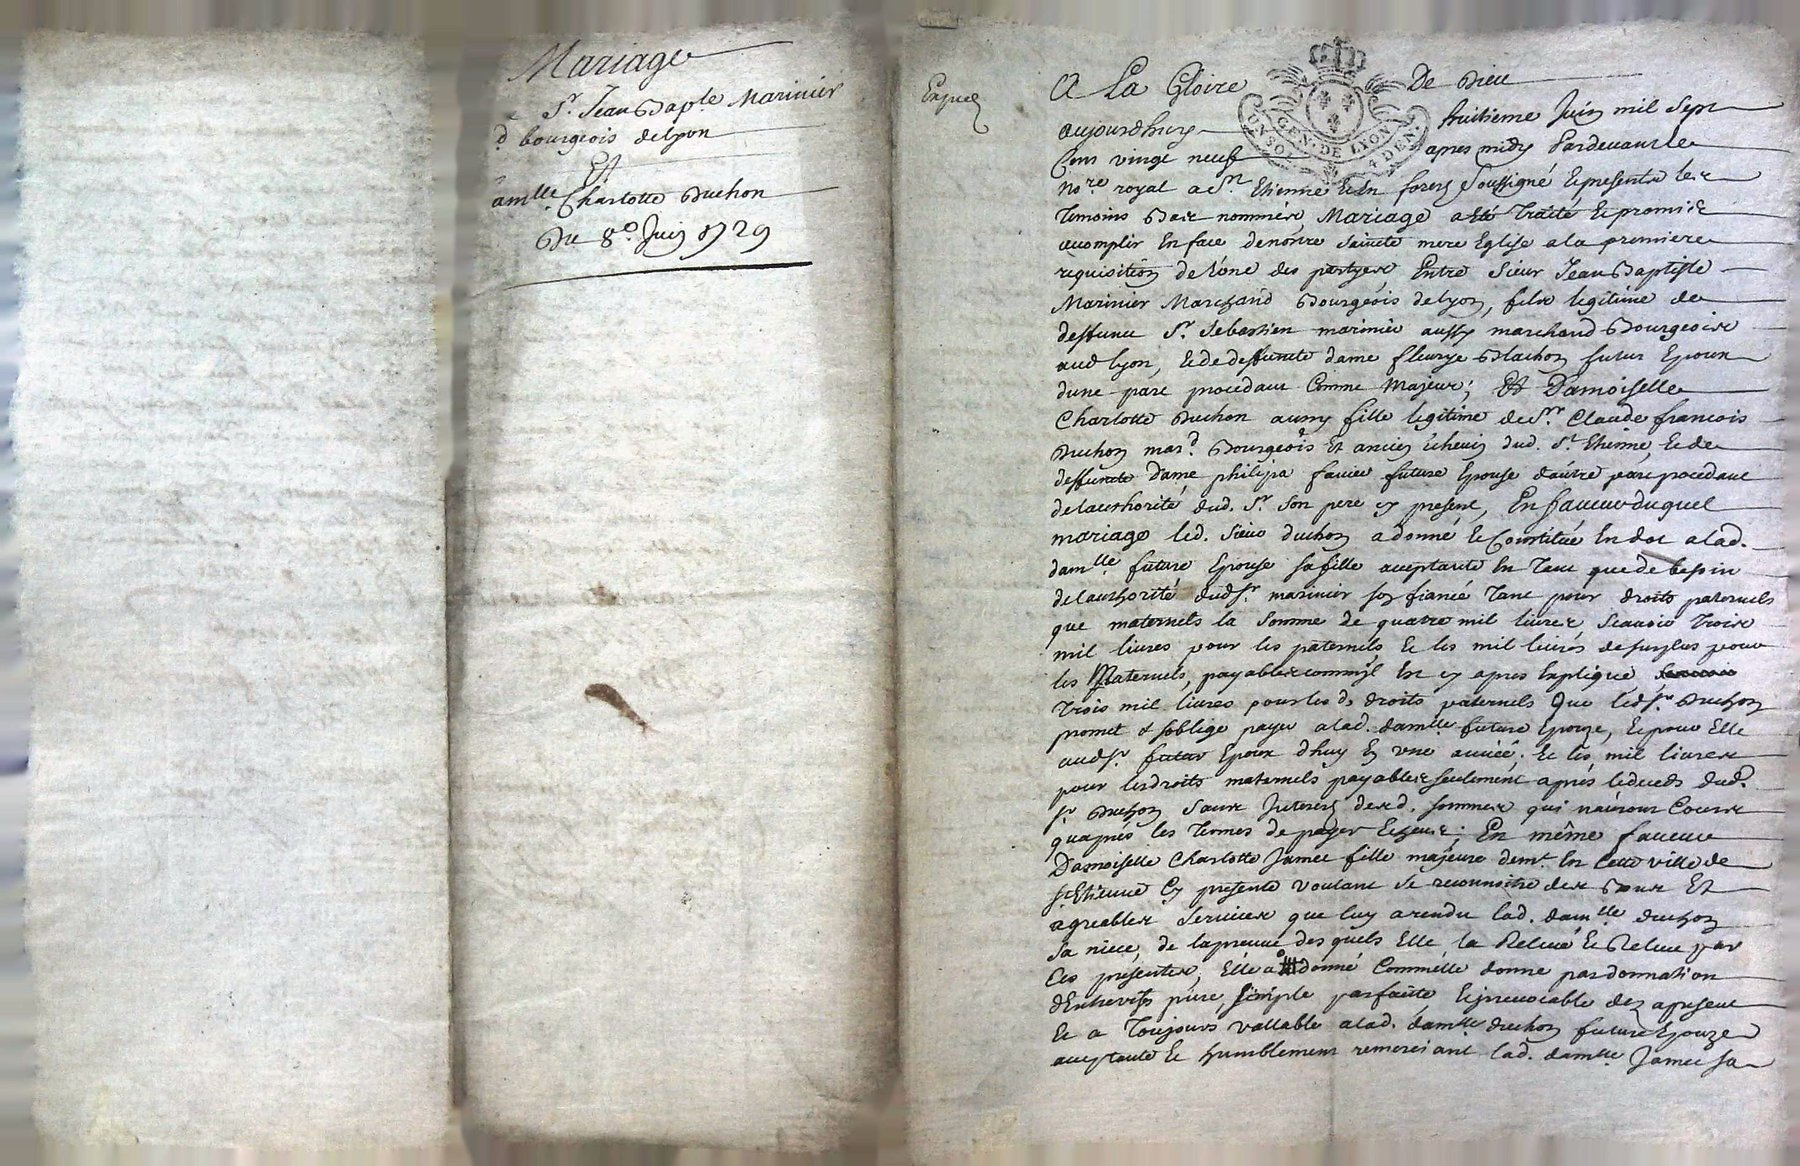 Mariage
Sr. Jean Bapte Marinier
d bourgeois de Lyon
Et
damlle Charlotte Duchon
Du 8e. Juin 1729
Expiee
A La Gloire De Dieu
GEN. DE LYON
UN SOL 4 DEN.
aujourdhuy huitieme Juin mil Sept
Cens vingt neuf apres midy Pardevant le
nore royal a St Etienne En forez Soussigné Et presents les
temoins Bas nommés, Mariage a été Traité Et promis
acomplir En face de nôtre sainte mere Eglise a la premiere
requisition de l'une des partyes Entre Sieur Jean Baptiste
Marinier Marchand Bourgeois de Lyon, fils legitime de
deffunct Sr. Sebastien marinier aussy marchand Bourgeois
aud Lyon, Et de deffuncte dame fleurye Blachon futur Epoux
dune part procedant Comme Majeur; Et Damoiselle
Charlotte Duchon aussy fille legitime de Sr. Claude francois
Duchon mard. Bourgeois Et ancien Echevin dud. St Etienne, Et de
deffuncte Dame philipa favier future Epouse dautre part procedant
de lauthorité dud. Sr. Son pere cy present, En faveur duquel
mariage led. Sieur duchon a donné Et Constitué En dot a lad.
damlle future Epouse sa fille acceptante En Tant que de besoin
de lauthorité dud Sr. marinier son fiancé Tant pour droits paternels
que maternels la Somme de quatre mil livres Scavoir Trois
mil livres pour les paternels, Et les mil livres de surplus pour
les Maternels, payables comm'il Est cy apres Expliqué
Trois mil livres pour les d. droits paternels Que led Sr. Duchon
promet & soblige payer a lad. damlle future Epouze, Et pour Elle
aud Sr. futur Epoux dhuy En une année; Et les mil livres
pour les droits maternels payables seulement apres le deceds dud.
Sr. Duchon Sans Interets desd. sommes qui nauront Cours
quapres les termes de payer Echeus; En même faveur
Damoiselle Charlotte Jamet fille majeure demt. En Cette ville de
St Etienne Cy presente voulant Se reconnoitre des Bons Et
agreables Services que luy a rendu lad. damlle duchon
Sa niece, de la preuve des quels Elle la Releve Et Releve par
Ces presentes, Elle a donné Comm'elle donne par donnation
d'Entrevifs pure, simple parfaite Et irrevocable des a present
Et a Toujours vallable a lad. damlle duchon future Epouze
acceptante Et humblement remerciant lad. damlle Jamet sa